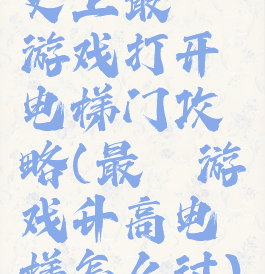 史上最
游戏打开
电梯门攻
略(最 游
戏升高电
梯怎么过)